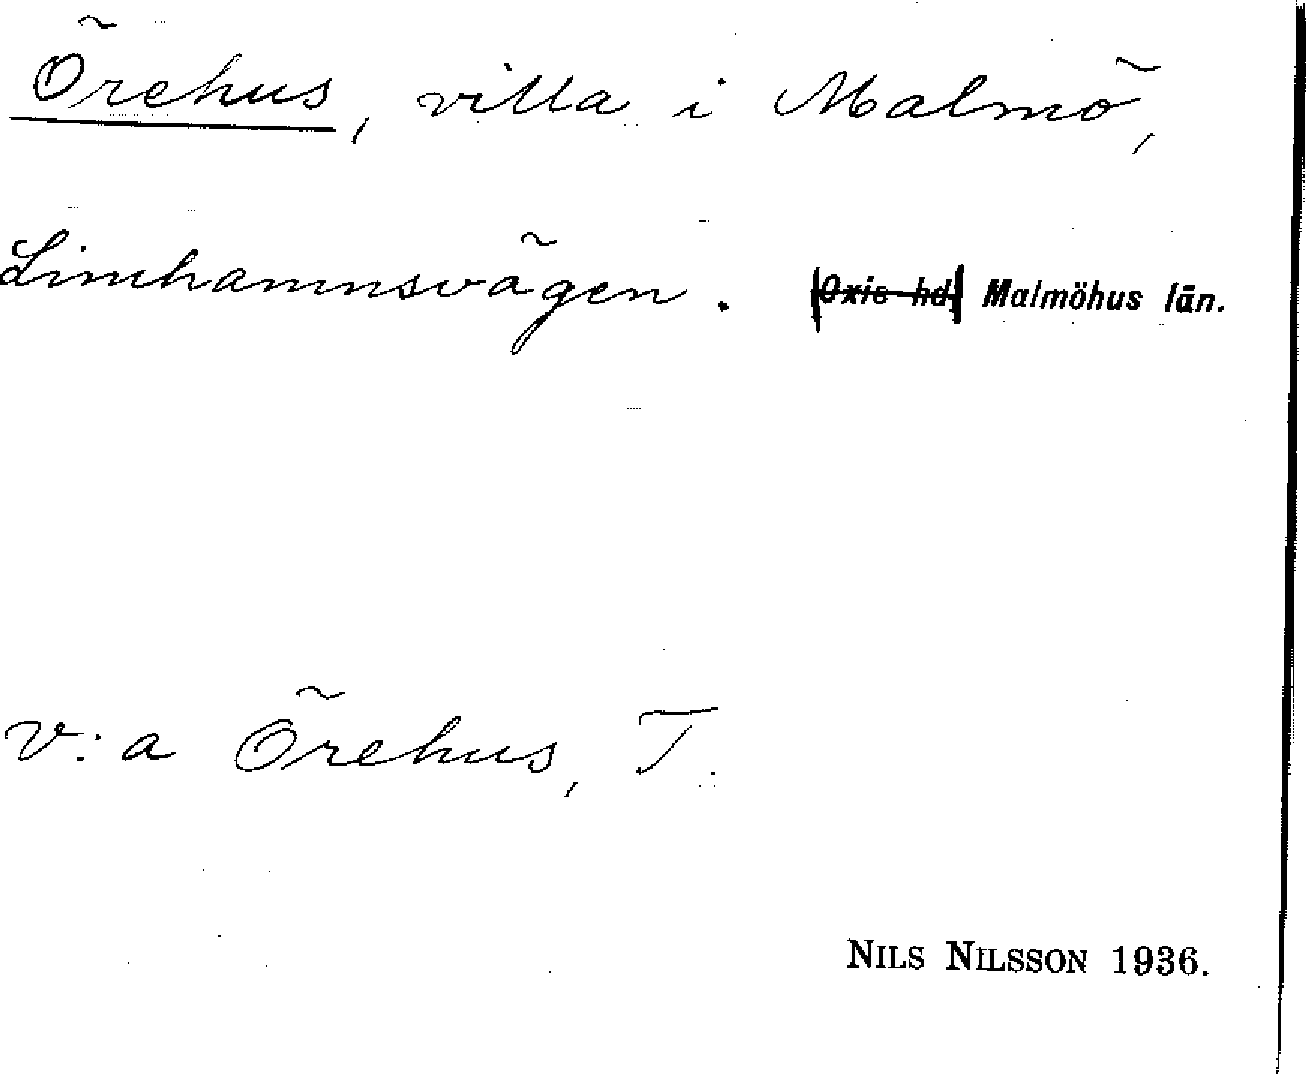 Örehus, villa i Malmö,
Limhamnsvägen. Oxie hd Malmöhus län.
V:a Örehus, T.
NILS NILSSON 1936.